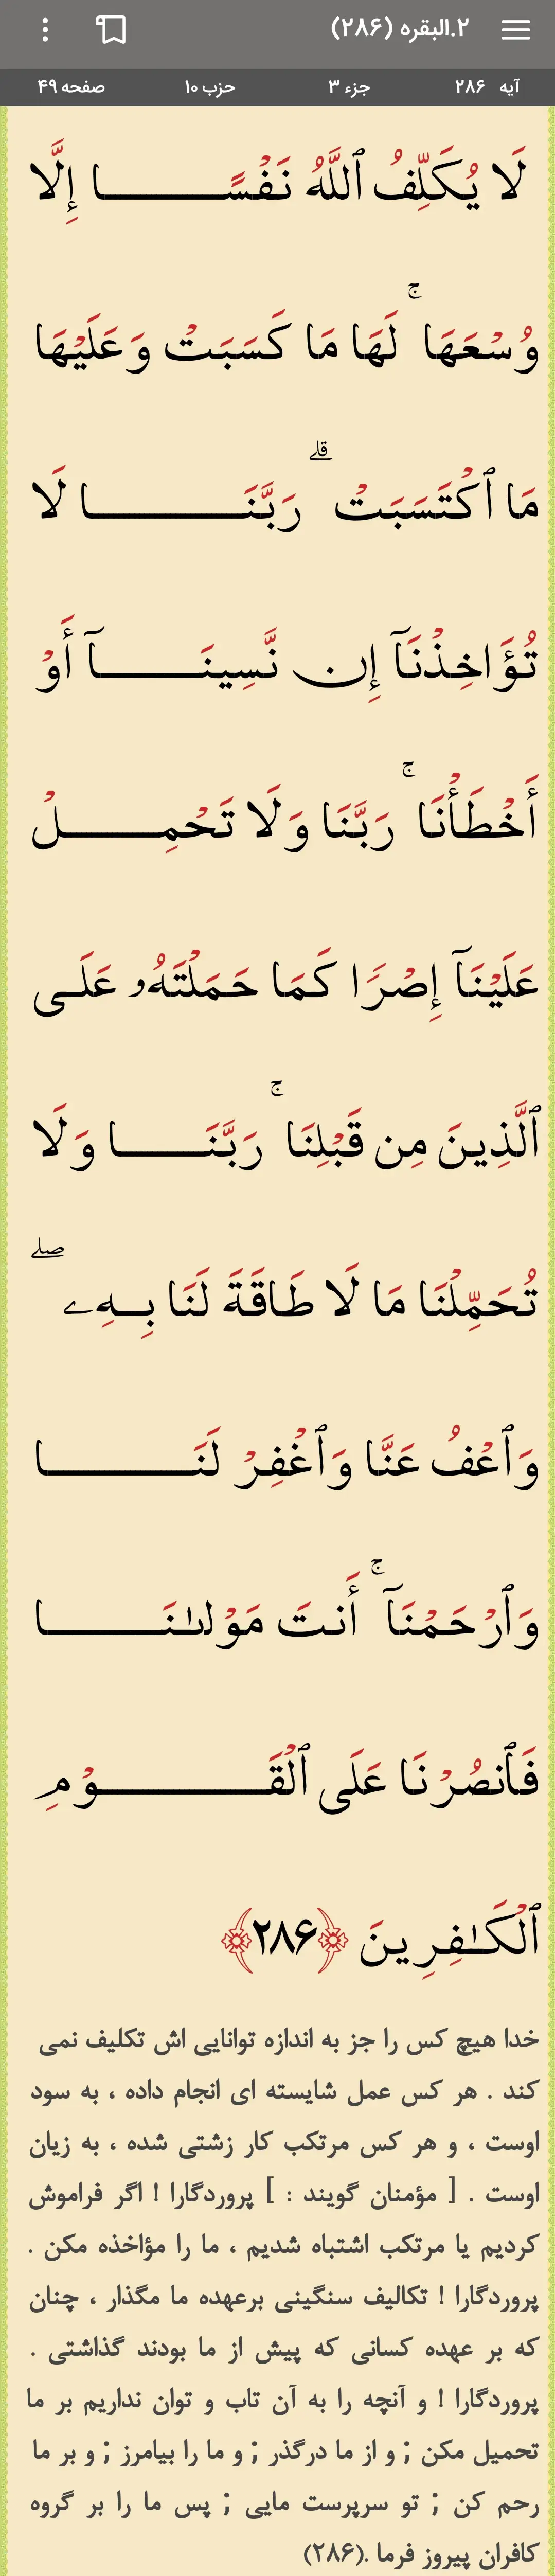 ۲.البقره (۲۸۶)
آیه ۲۸۶ جزء ۳ حزب ۱۰ صفحه ۴۹
لَا يُكَلِّفُ ٱللَّهُ نَفْسًا إِلَّا
وُسْعَهَا ۚ لَهَا مَا كَسَبَتْ وَعَلَيْهَا
مَا ٱكْتَسَبَتْ ۗ رَبَّنَا لَا
تُؤَاخِذْنَآ إِن نَّسِينَآ أَوْ
أَخْطَأْنَا ۚ رَبَّنَا وَلَا تَحْمِلْ
عَلَيْنَآ إِصْرًا كَمَا حَمَلْتَهُۥ عَلَى
ٱلَّذِينَ مِن قَبْلِنَا ۚ رَبَّنَا وَلَا
تُحَمِّلْنَا مَا لَا طَاقَةَ لَنَا بِهِۦ ۖ
وَٱعْفُ عَنَّا وَٱغْفِرْ لَنَا
وَٱرْحَمْنَآ ۚ أَنتَ مَوْلَىٰنَا
فَٱنصُرْنَا عَلَى ٱلْقَوْمِ
ٱلْكَـٰفِرِينَ ﴿۲۸۶﴾
خدا هیچ کس را جز به اندازه توانایی اش تکلیف نمی
کند . هر کس عمل شایسته ای انجام داده ، به سود
اوست ، و هر کس مرتکب کار زشتی شده ، به زیان
اوست . [ مؤمنان گویند : ] پروردگارا ! اگر فراموش
کردیم یا مرتکب اشتباه شدیم ، ما را مؤاخذه مکن .
پروردگارا ! تکالیف سنگینی برعهده ما مگذار ، چنان
که بر عهده کسانی که پیش از ما بودند گذاشتی .
پروردگارا ! و آنچه را به آن تاب و توان نداریم بر ما
تحمیل مکن ; و از ما درگذر ; و ما را بیامرز ; و بر ما
رحم کن ; تو سرپرست مایی ; پس ما را بر گروه
کافران پیروز فرما .(۲۸۶)